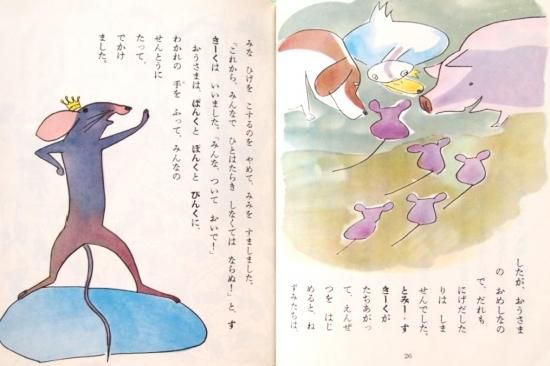 したが、おうさま
のおめしなの
で、だれも
にげだした
りは しま
せんでした。
とみー・す
きーくが
たちあがっ
て、えんぜ
つを はじ
めると、ね
ずみたちは、
26
みな ひげを こするのを やめて、みみを すましました。
「これから、みんなで ひとはたらき しなくては ならぬ！」と、す
きーくは いいました。「みんな、ついて おいで！」
おうさまは、ぽんくと ぽんくと ぴんくに、
わかれの 手を ふって、みんなの
せんとうに
たって、
でかけ
ました。